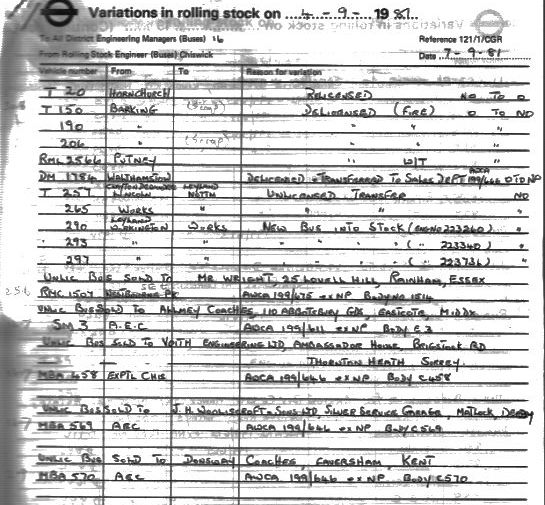 Variations in rolling stock on 4-9-1981
To All District Engineering Managers (Buses) 16 Reference 121/1/CGR
From Rolling Stock Engineer (Buses) Chiswick Date 7-9-81
Vehicle number From To Reason for variation
T 20 HORNCHURCH RELICENSED NO TO O
T 150 BARKING (Scrap) DELICENSED (FIRE) O TO NO
190 " "
206 " (Scrap) " "
RML 2566 PUTNEY " W/T "
DM 1784 WALTHAMSTOW DELICENSED & TRANSFERRED TO SALES DEPT AWCA 199/646 O TO NP
T 257 LINCOLN LEYLAND NOTTM UNLICENSED TRANSFER NO
265 WORKS " " " "
290 LEYLAND WORKINGTON WORKS NEW BUS INTO STOCK (ENG NO 223260) "
293 " " " " " " (" 223340) "
297 " " " " " " (" 223736) "
UNLIC BUS SOLD TO MR WRIGHT, 25 LOVELL HILL, RAINHAM, ESSEX
RMC 1507 WESTBOURNE PK AWCA 199/675 ex NP BODY NO 1514
UNLIC BUS SOLD TO COACHES, 110 GDS, EASTCOTE, MIDDX
SM 3 A.E.C AWCA 199/611 ex NP BODY E3
UNLIC BUS SOLD TO VOITH ENGINEERING LTD, AMBASSADOR HOUSE, BRIGSTOCK RD
THORNTON HEATH SURREY
MBA 458 EXPTL CHIS AWCA 199/646 ex NP BODY C458
UNLIC BUS SOLD TO J.H. WOOLISCROFT & SONS LTD, SILVER SERVICE GARAGE, MATLOCK, DERBY
MBA 569 AEC AWCA 199/646 ex NP BODY C569
UNLIC BUS SOLD TO DONSWAY COACHES, FAVERSHAM, KENT
MBA 570 AEC AWCA 199/646 ex NP BODY C570